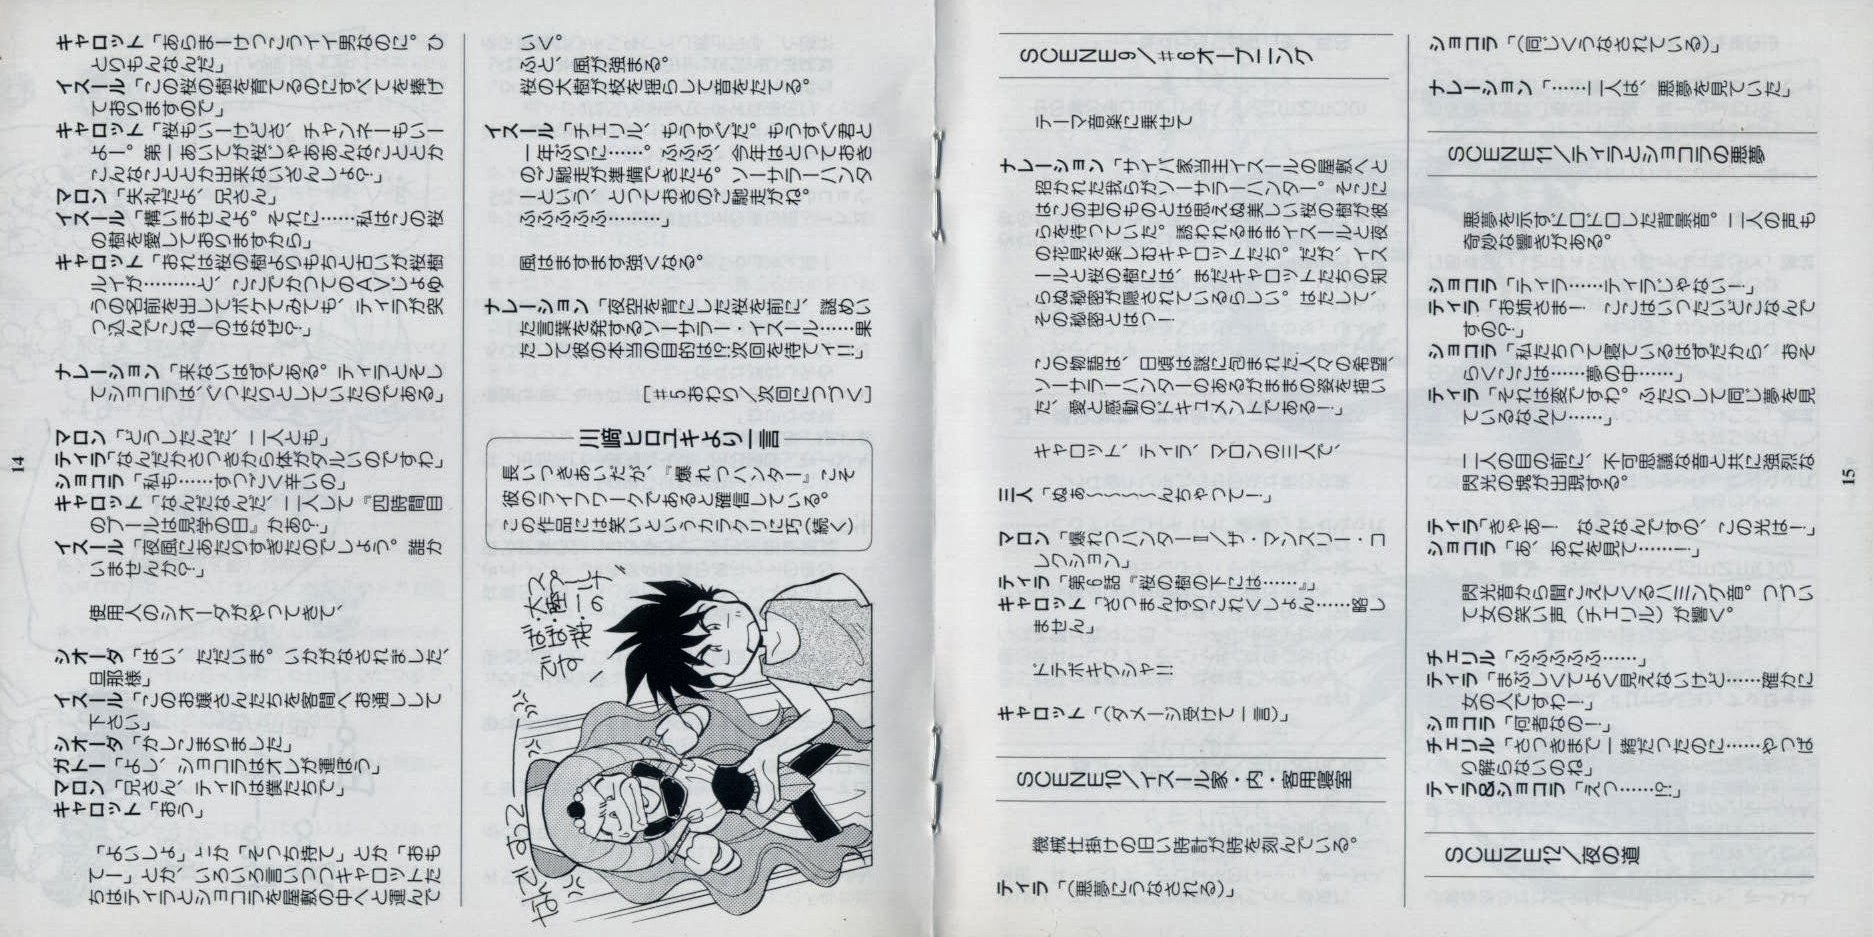 キャロット「あらまーけっこうイイ男なのに。ひ
とりもんなんだ」
イスール「この桜の樹を育てるのにすべてを捧げ
ておりますので」
キャロット「桜もいーけどさ、チャンネーもいー
よー。第一あいてが桜じゃああんなこととか
こんなこととか出来ないさんしょ?」
マロン「失礼だよ、兄さん」
イスール「構いませんよ。それに……私はこの桜
の樹を愛しておりますから」
キャロット「おれは桜の樹よりもちと古いが桜樹
ルイが………と、ここでかつてのAVじょゆ
うの名前を出してボケてみても、ティラが突
っ込んでこねーのはなぜ?」
ナレーション「来ないはずである。ティラとそし
てショコラは、ぐったりとしていたのである」
マロン「どうしたんだ、二人とも」
ティラ「なんだかさっきから体がダルいのですわ」
ショコラ「私も……すっごく辛いの」
キャロット「なんだなんだ、二人して『四時間目
のプールは見学の日』かあ?」
イスール「夜風にあたりすぎたのでしょう。誰か
いませんか?」
使用人のシオータがやってきて、
シオータ「はい、ただいま。いかがなされました、
旦那様」
イスール「このお嬢さんたちを客間へお通しして
下さい」
シオータ「かしこまりました」
ガトー「よし、ショコラはオレが運ぼう」
マロン「兄さん、ティラは僕たちで」
キャロット「おう」
「よいしょ」とか「そっち持て」とか「おも
てー」とか、いろいろ言いつつキャロットた
ちはティラとショコラを屋敷の中へと運んで
14
いく。
ふと、風が強まる。
桜の大樹が枝を揺らして音をたてる。
イスール「チェリル、もうすぐだ。もうすぐ君と
一年ぶりに……。ふふふ、今年はとっておき
のご馳走が準備できたよ。ソーサラーハンタ
ーという、とっておきのご馳走がね。
ふふふふふ……」
風はますます強くなる。
ナレーション「夜空を背にした桜を前に、謎めい
た言葉を発するソーサラー・イスール……果
たして彼の本当の目的は!?次回を待てイ!!」
[#5おわり/次回につづく]
川崎ヒロユキより一言
長いつきあいだが、『爆れつハンター』こそ
彼のライフワークであると確信している。
この作品には笑いというカラクリに巧(続く)
SCENE9/#6オープニング
テーマ音楽に乗せて
ナレーション「サイバ家当主イスールの屋敷へと
招かれた我らがソーサラーハンター。そこに
はこの世のものとは思えぬ美しい桜の樹が彼
らを待っていた。誘われるままイスールと夜
の花見を楽しむキャロットたち。だが、イス
ールと桜の樹には、まだキャロットたちの知
らぬ秘密が隠されているらしい。はたして、
その秘密とはっ!
この物語は、日頃は謎に包まれた人々の希望、
ソーサラーハンターのあるがままの姿を描い
た、愛と感動のドキュメントである!」
キャロット、ティラ、マロンの三人で、
三人「ぬぁ〜〜〜〜んちゃってー!」
マロン「爆れつハンターII/ザ・マンスリー・コ
レクション」
ティラ「第6話『桜の樹の下には……』」
キャロット「さつまんすりこれくしょん……略し
ません」
ドテポキグシャ!!
キャロット「(ダメージ受けて一言)」
SCENE10/イスール家・内・客用寝室
機械仕掛けの旧い時計が時を刻んでいる。
ティラ「(悪夢にうなされる)」
ショコラ「(同じくうなされている)」
ナレーション「……二人は、悪夢を見ていた」
SCENE11/ティラとショコラの悪夢
悪夢を示すドロドロした背景音。二人の声も
奇妙な響きがある。
ショコラ「ティラ……ティラじゃない!」
ティラ「お姉さま! ここはいったいどこなんで
すの?」
ショコラ「私たちって寝ているはずだから、おそ
らくここは……夢の中……」
ティラ「それは変ですわ。ふたりして同じ夢を見
ているなんて……」
二人の目の前に、不可思議な音と共に強烈な
閃光の塊が出現する。
ティラ「きゃあ! なんなんですの、この光は!」
ショコラ「あ、あれを見て……!」
閃光音から聞こえてくるハミング音。つづい
て女の笑い声(チェリル)が響く。
チェリル「ふふふふふ……」
ティラ「まぶしくてよく見えないけど……確かに
女の人ですわ!」
ショコラ「何者なの!」
チェリル「さっきまで一緒だったのに……やっぱ
り解らないのね」
ティラ&ショコラ「えっ……!?」
SCENE12/夜の道
15